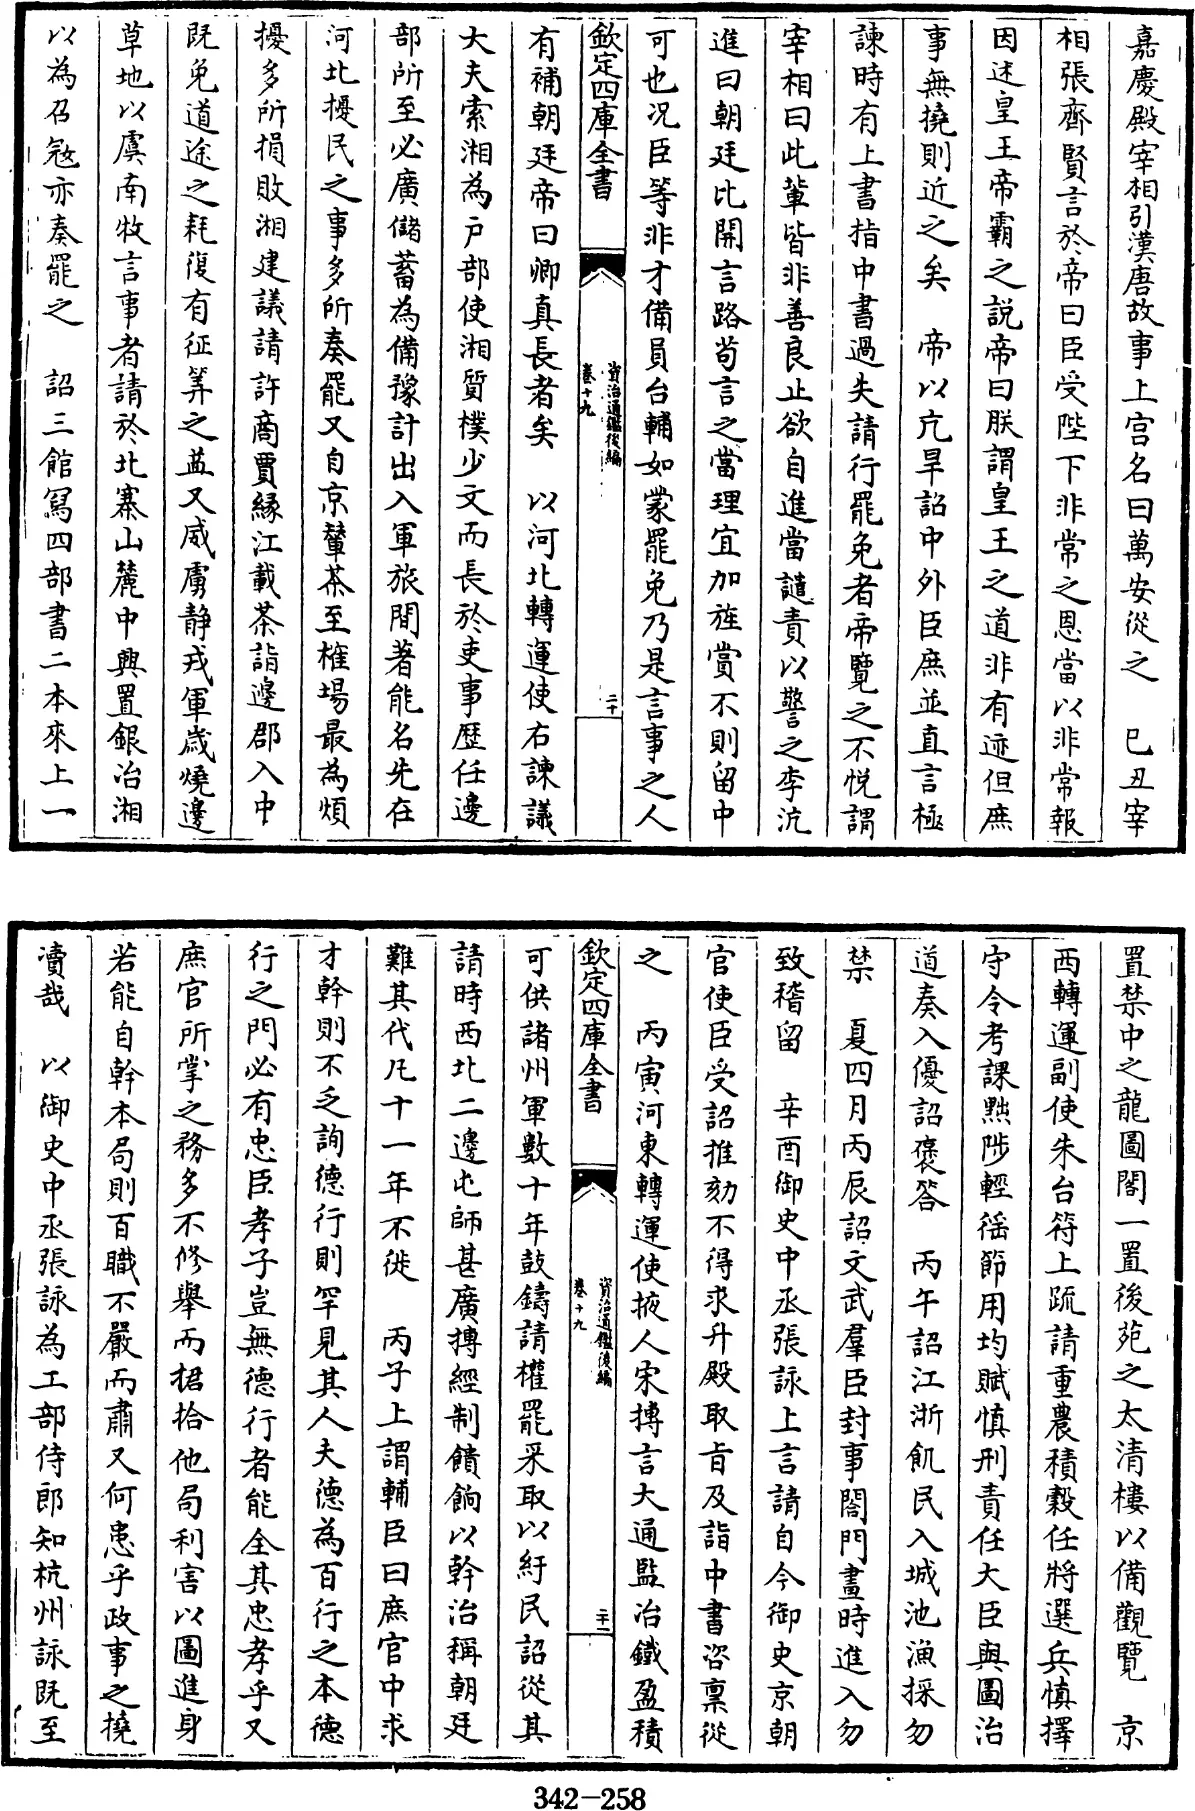 嘉慶殿宰相引漢唐故事上宫名曰萬安從之　巳丑宰
相張齊賢言於帝曰臣受陛下非常之恩當以非常報
因述皇王帝霸之説帝曰朕謂皇王之道非有迹但庶
事無撓則近之矣　帝以亢旱詔中外臣庶並直言極
諫時有上書指中書過失請行罷免者帝覽之不悦謂
宰相曰此輩皆非善良止欲自進當譴責以警之李沆
進曰朝廷比開言路茍言之當理宜加旌賞不則留中
可也况臣等非才備員台輔如蒙罷免乃是言事之人
欽定四庫全書
資治通鑑後編
卷十九
二十
有補朝廷帝曰卿真長者矣　以河北轉運使右諫議
大夫索湘為户部使湘質樸少文而長於吏事歴任邊
部所至必廣儲蓄為備豫計出入軍旅間著能名先在
河北擾民之事多所奏罷又自京輦茶至榷場最為煩
擾多所損敗湘建議請許商賈縁江載茶詣邊郡入中
既免道途之耗復有征算之益又威虜静戎軍歲燒邊
草地以虞南牧言事者請於北寨山麓中興置銀冶湘
以為召寇亦奏罷之　詔三館寫四部書二本來上一
置禁中之龍圖閣一置後苑之太清樓以備觀覽　京
西轉運副使朱台符上疏請重農積穀任將選兵慎擇
守令考課黜陟輕徭節用均賦慎刑責任大臣與圖治
道奏入優詔褒答　丙午詔江浙飢民入城池漁採勿
禁　夏四月丙辰詔文武羣臣封事閤門晝時進入勿
致稽留　辛酉御史中丞張詠上言請自今御史京朝
官使臣受詔推劾不得求升殿取旨及詣中書咨稟從
之　丙寅河東轉運使掖人宋摶言大通監冶鐵盈積
欽定四庫全書
資治通鑑後編
卷十九
二十一
可供諸州軍數十年鼓鑄請權罷采取以紓民詔從其
請時西北二邊屯師甚廣摶經制饋餉以幹治稱朝廷
難其代凡十一年不徙　丙子上謂輔臣曰庶官中求
才幹則不乏詢德行則罕見其人夫德為百行之本德
行之門必有忠臣孝子豈無德行者能全其忠孝乎又
庶官所掌之務多不修舉而捃拾他局利害以圖進身
若能自幹本局則百職不嚴而肅又何患乎政事之撓
瀆哉　以御史中丞張詠為工部侍郎知杭州詠既至
342-258